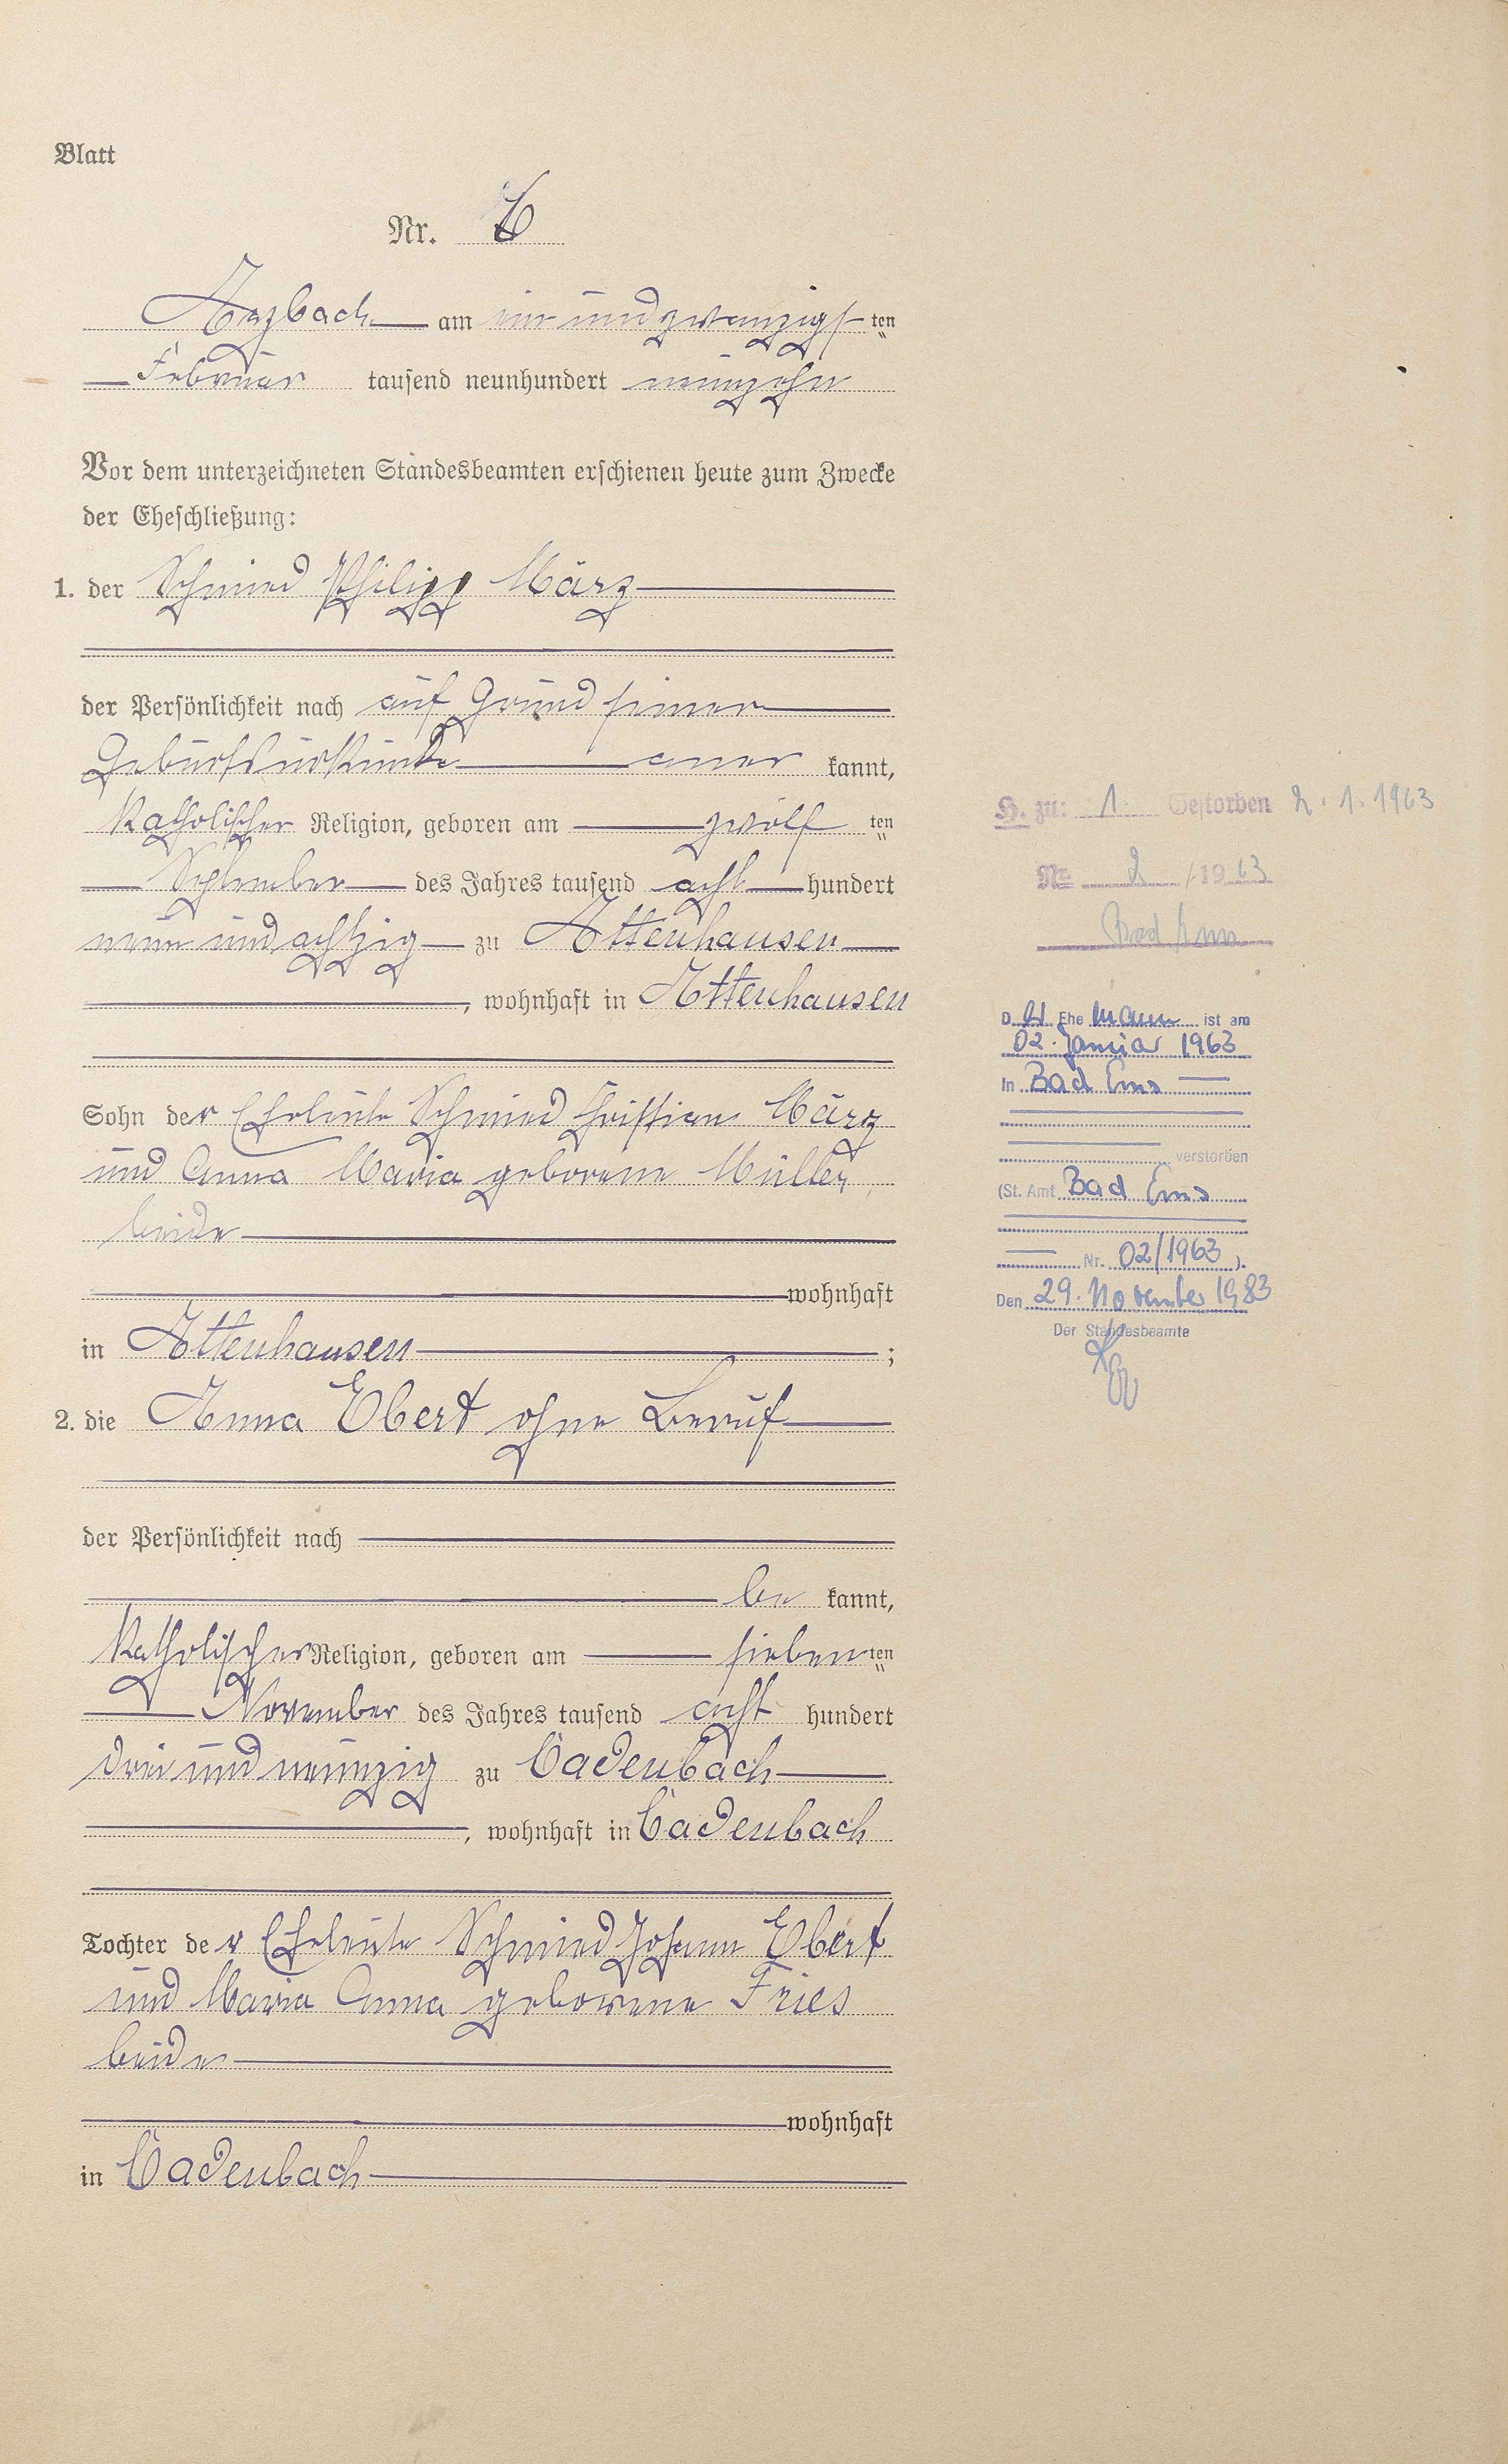 Blatt
Nr. 6
Arzbach am ein und zwanzigsten
Februar tausend neunhundert neunzehn
Vor dem unterzeichneten Standesbeamten erschienen heute zum Zwecke
der Eheschließung:
1. der Schmied Philipp März
der Persönlichkeit nach auf Grund seiner
Geburtsurkunde aner kannt,
katholischer Religion, geboren am zwölf ten
September des Jahres tausend acht hundert
neun und achtzig zu Attenhausen
, wohnhaft in Attenhausen
Sohn der Eheleute Schmied Christian März
und Anna Maria geborene Müller,
beide
wohnhaft
in Attenhausen ;
2. die Anna Ebert ohne Beruf
der Persönlichkeit nach
be kannt,
katholischer Religion, geboren am sieben ten
November des Jahres tausend acht hundert
drei und neunzig zu Cadenbach
, wohnhaft in Cadenbach
Tochter der Eheleute Schmied Johann Ebert
und Maria Anna geborene Fries
beide
wohnhaft
in Cadenbach
H. zu: 1. Gestorben 2.1.1963
Nr. 2 /1963
Bad Ems
D er Ehe mann ist am
02. Januar 1963
In Bad Ems
verstorben
(St. Amt Bad Ems
Nr. 02/1963 ).
Den 29. November 1983
Der Standesbeamte